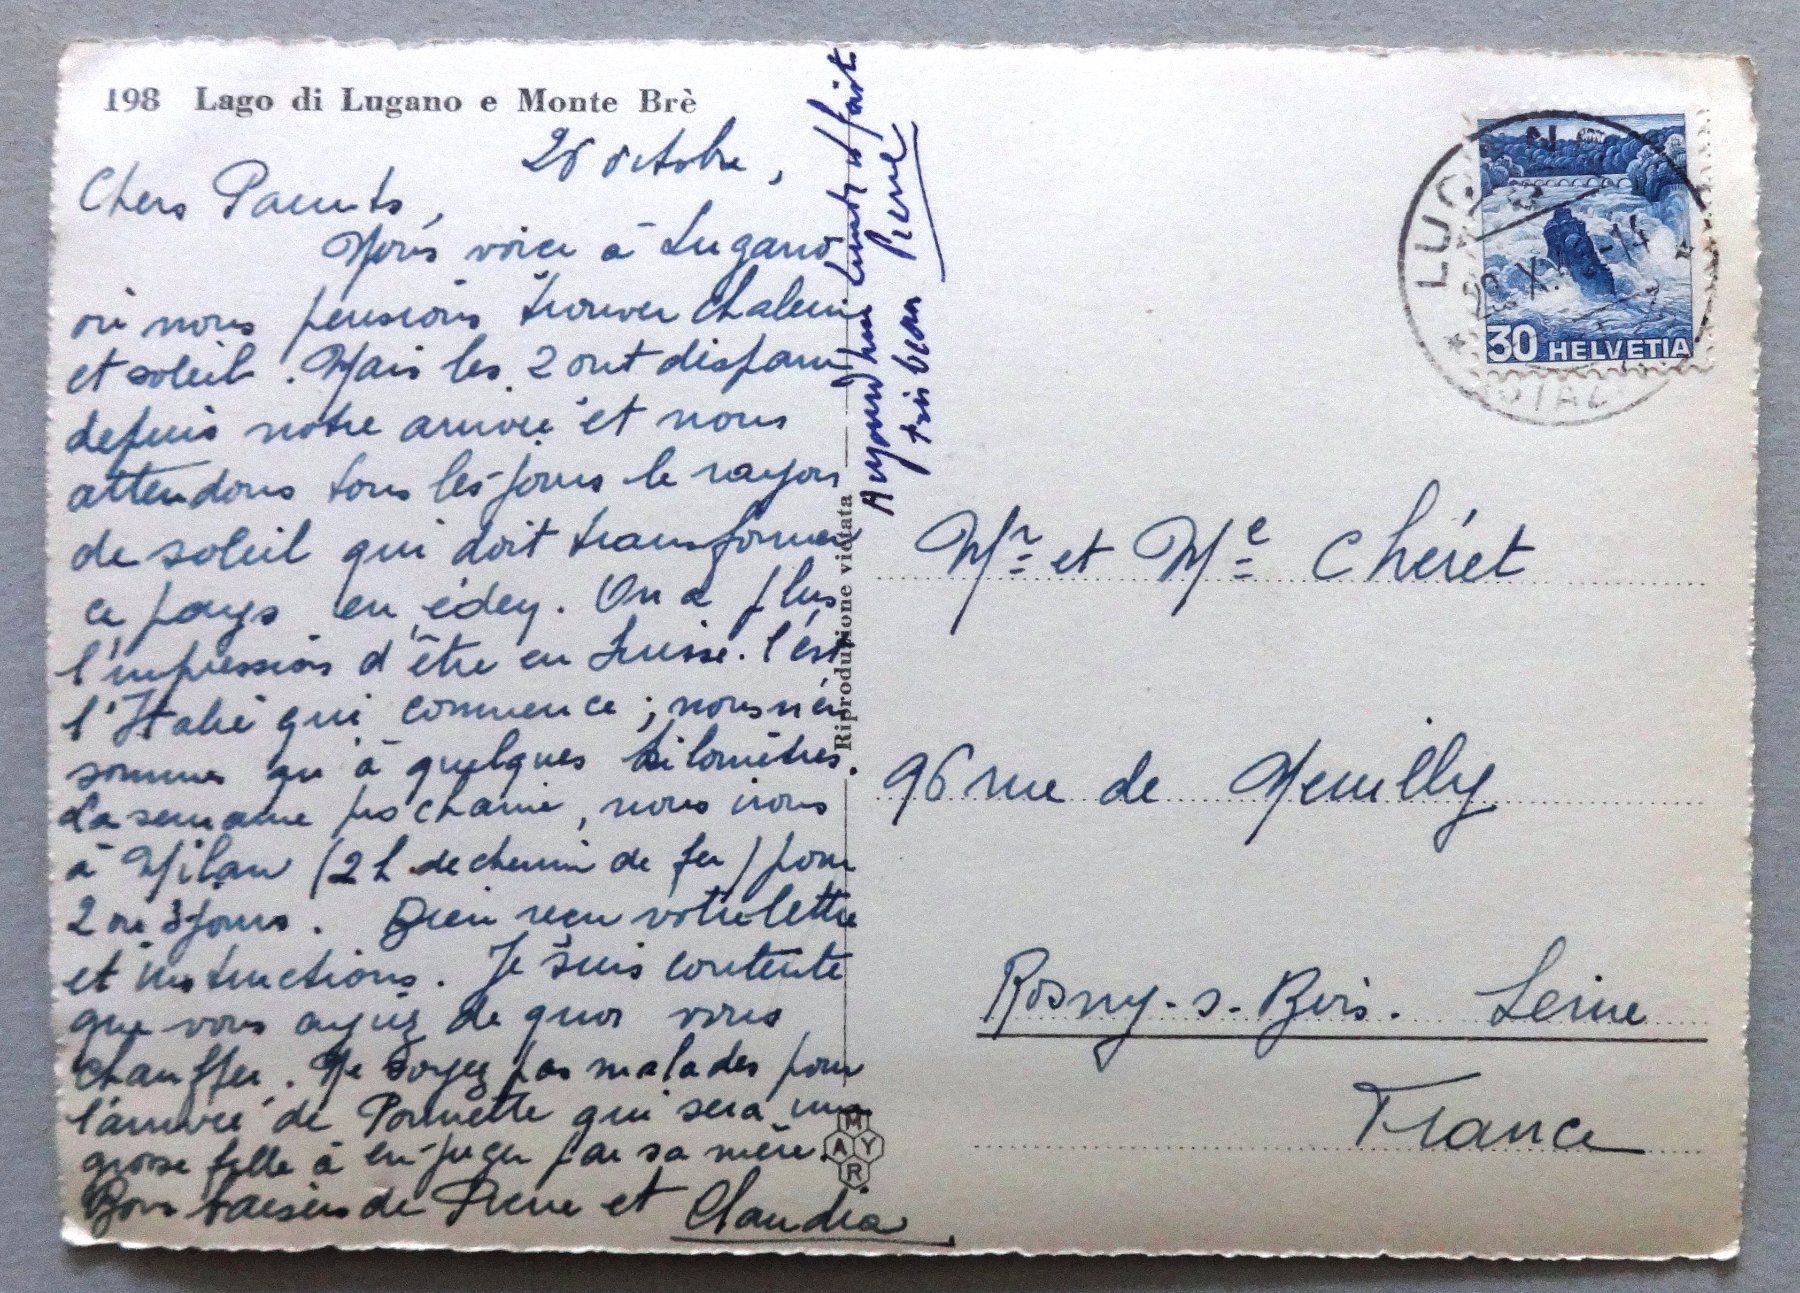 198 Lago di Lugano e Monte Brè
26 octobre,
Chers Parents,
Nous voici à Lugano
où nous pensions trouver chaleur
et soleil. Mais les 2 ont disparu
depuis notre arrivée et nous
attendons tous les jours le rayon
de soleil qui doit transformer
ce pays en éden. On a plus
l'impression d'être en Suisse. C'est
l'Italie qui commence ; nous n'en
sommes qu'à quelques kilomètres.
La semaine prochaine, nous irons
à Milan (2 h de chemin de fer) pour
2 ou 3 jours. Bien reçu votre lettre
et instructions. Je suis contente
que vous ayiez de quoi vous
chauffer. Ne soyez pas malades pour
l'arrivée de qui sera une
grosse fille à en juger par sa mère.
Bons baisers de Pierre et Claudia
Aujourd'hui lundi il fait
très beau Pierre
Riproduzione vietata
MAYR
30 HELVETIA
Mr et Me Chéret
96 rue de Neuilly
Rosny-s-Bois. Seine
France